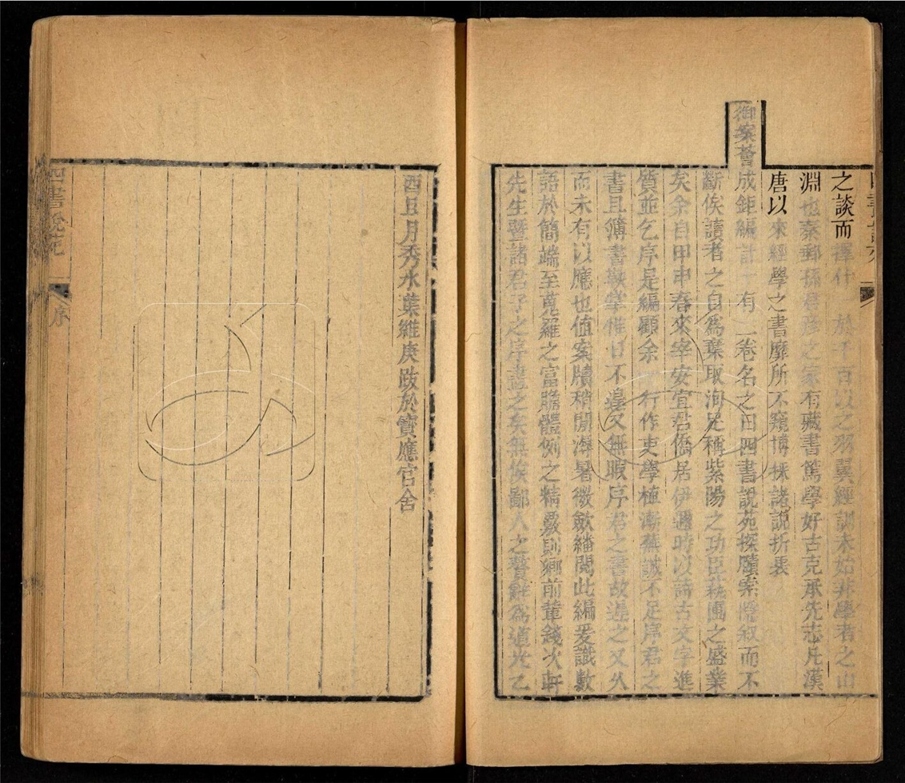 之談而擇什 於千百以之羽翼經訓未始非學者之山
淵也秦郵孫君彦之家有藏書篤學好古克承先志凡漢
唐以來經學之書靡所不窺博採諸說折衷
御案薈成鉅編計十有二卷名之曰四書說苑探賾索隱叙而不
斷俟讀者之自為棄取洵足稱紫陽之功臣萩圃之盛業
矣余自甲申春來宰安宜君僑居伊邇時以詩古文字進
質並乞序是編顧余 行作吏學植漸蕪誠不足序君之
書且簿書鞅掌惟日不遑又無暇序君之書故遲之又久
而未有以應也值案牘稍閒溽暑微歛繙閱此編爰識數
語於簡端至蒐羅之富贍體例之精嚴則鄉前輩錢次軒
先生暨諸君子之序盡之矣無俟鄙人之贅辭為道光乙
酉且月秀水葉維庚跋於寶應官舍
四書說苑
序